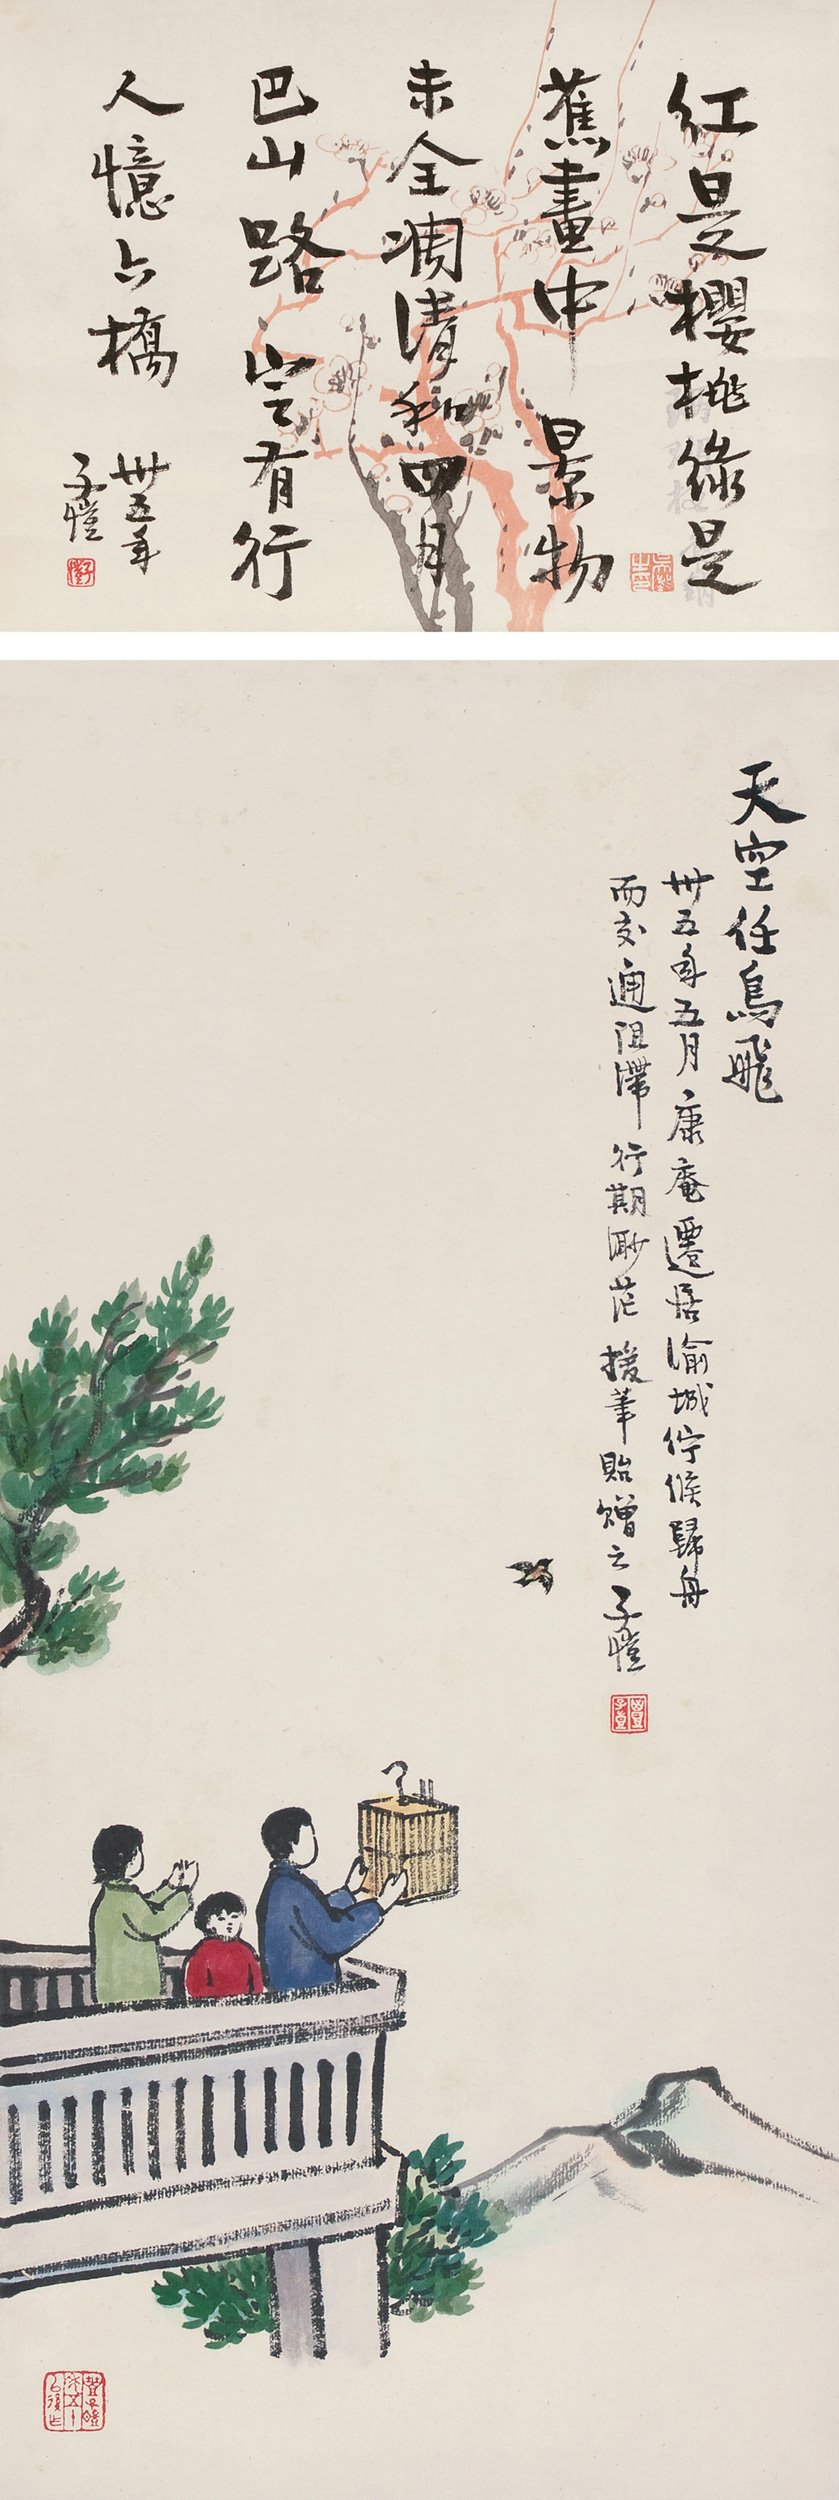 红是櫻桃綠是
蕉畫中景物
未全凋清和四月
巴山路定有行
人憶六橋
卅五年
子愷
天空任鳥飛
卅五年五月康庵遷居渝城佇候歸舟
而交通阻滯行期渺茫援筆貽贈之子愷